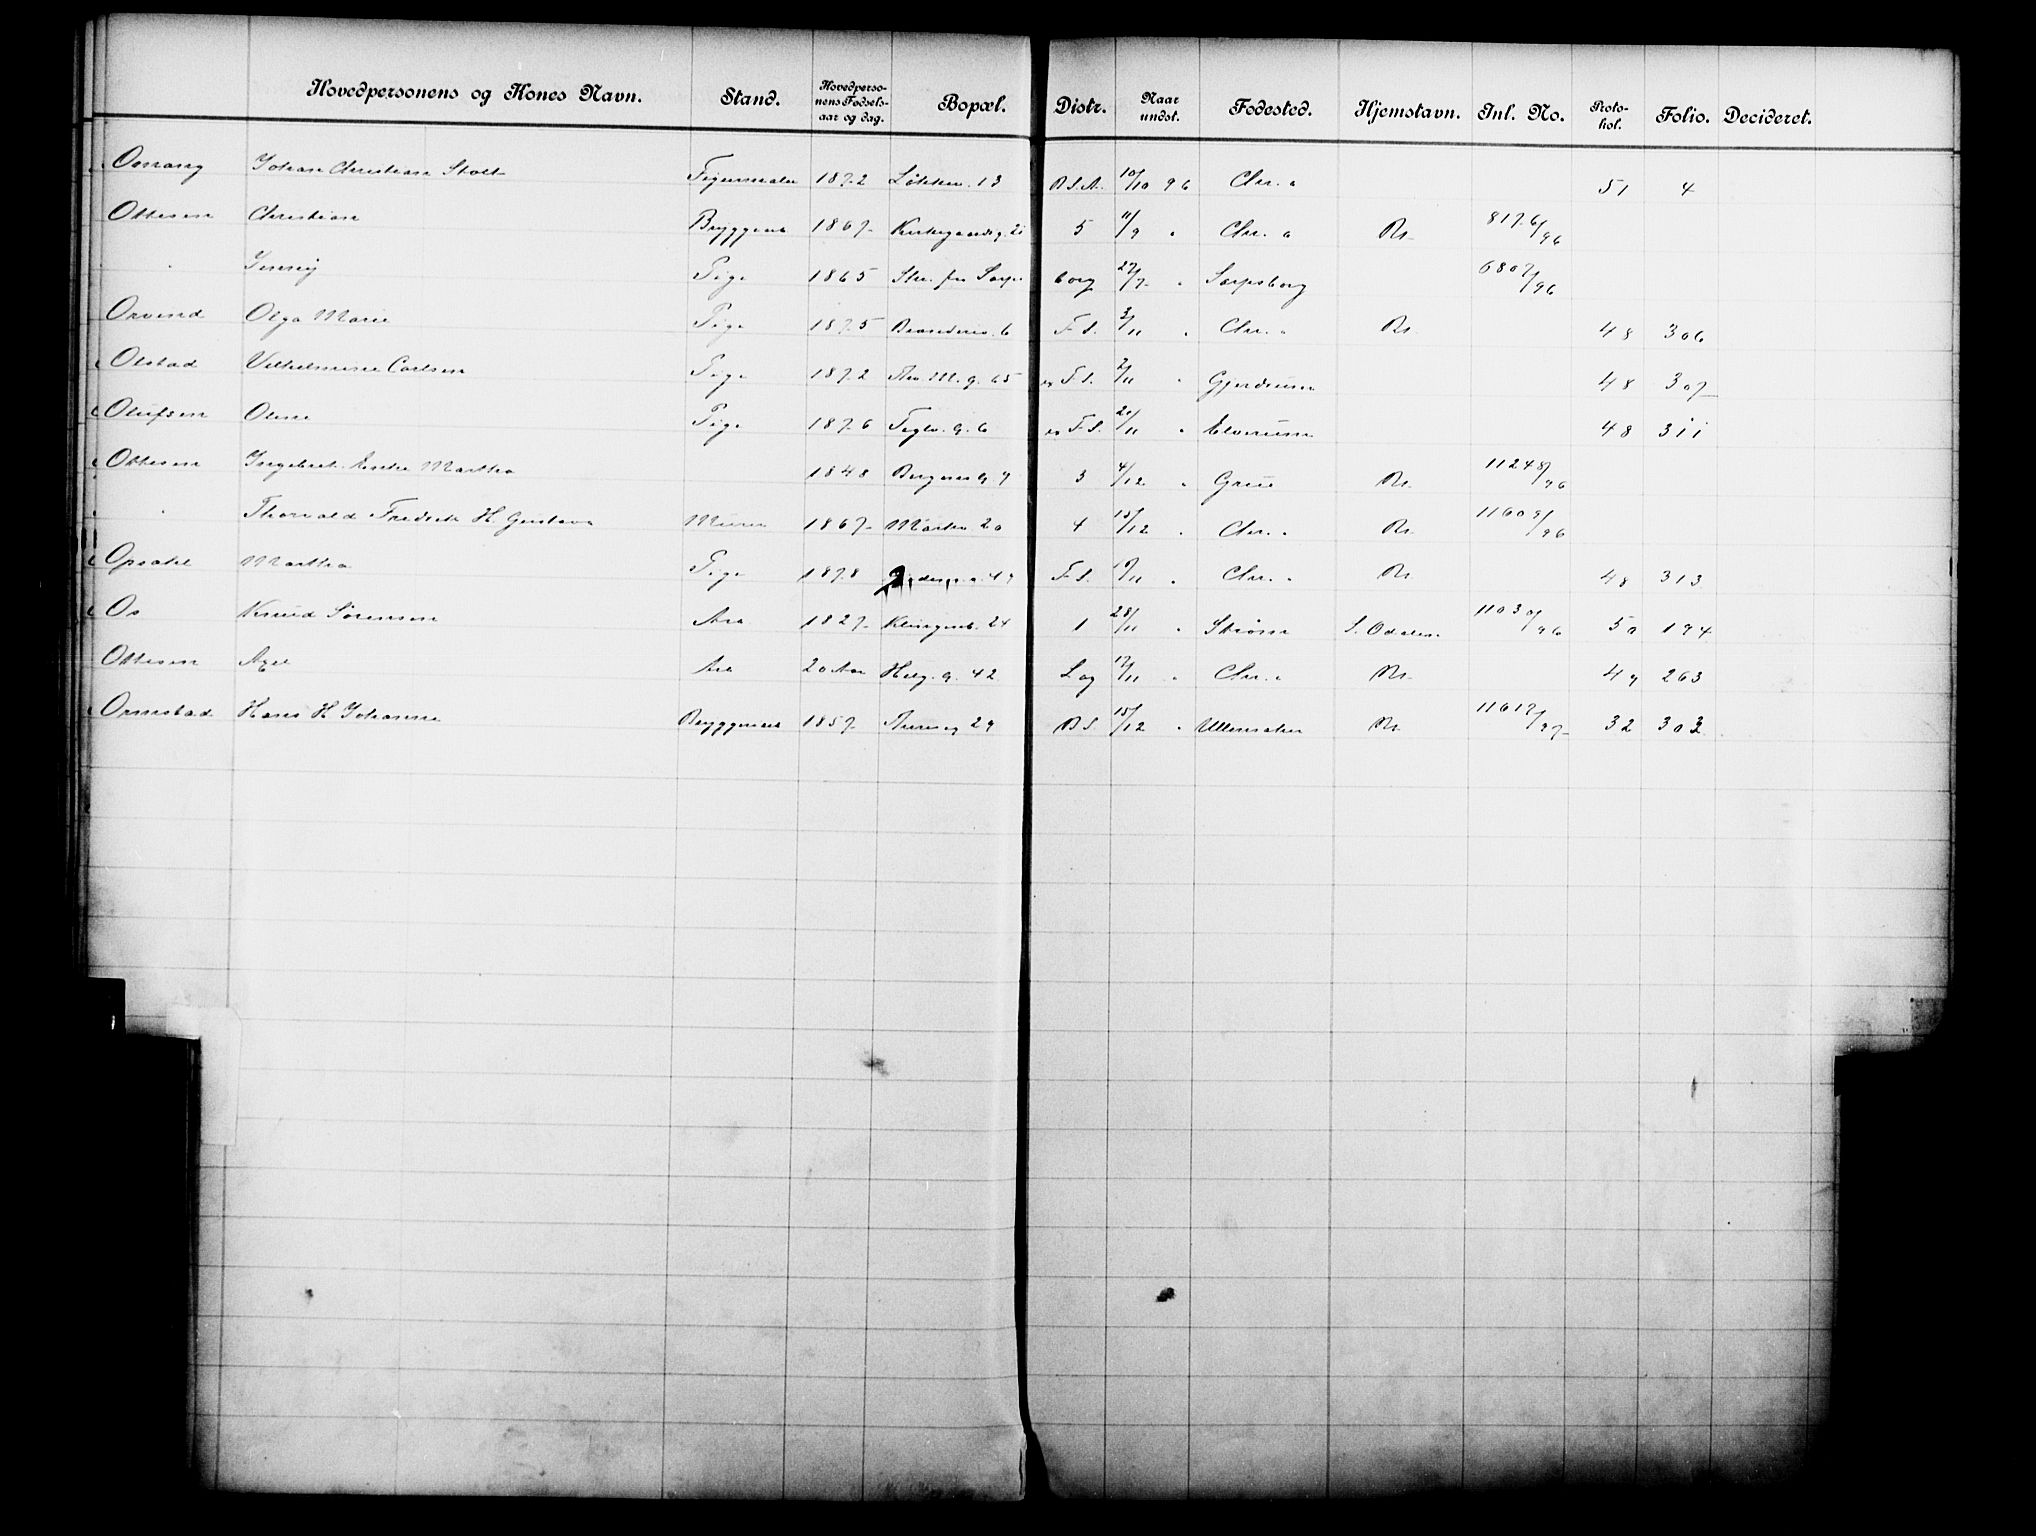 Hovedpersonens og Kones Navn. Stand. Hovedperso-nens Fødsels-aar og dag. Bopæl. Distr. Naar undst. Fødested. Hjemstavn. Inl. No. Proto-kol. Folio. Decideret.
Omang Johan Christian Stoltz 1872 Løkkev. 13 10/10 96 Chr.a 51 4
Ottesen Christian Bryggearb 1867 Kirkegaardsg. 5 11/9 " Chr.a 8176/96
" Jenny Pige 1865 Str. fra Sarpsborg 27/7 " Sarpsborg 6807/96
Orvind Olga Marie Pige 1875 6 F.S. 3/11 " Chr.a 48 306
Olstad Vilhelmine Carlsen Pige 1872 Thv. M. g. 65 F.S. 2/11 " Gjerdrum 48 307
Olufsen Oline Pige 1876 Teglv. g. 6 F.S. 20/11 " Elverum 48 311
Ottesen Ingebret Enke Martha 1848 Bergens g 9 3 4/12 " Grue 11248/96
" Thorvald Fredrik H. Gustava Murer 1867 Markv. 20 4 15/12 " Chr.a 11609/96
Opsahl Martha Pige 1878 F.S. /11 " Chr.a 48 313
Os Knud Sørensen Arb 1827 Klingenb. 24 1 28/11 " Strøm S. Odalen 11030/96 50 194
Ottesen Axel Arb 20 Aar Helg. g. 42 Lag 17/11 " Chr.a 49 263
Ormstad Hans H Johanne Bryggearb 1857 29 B.S. 15/12 " Ullensaker 11617/97 32 303